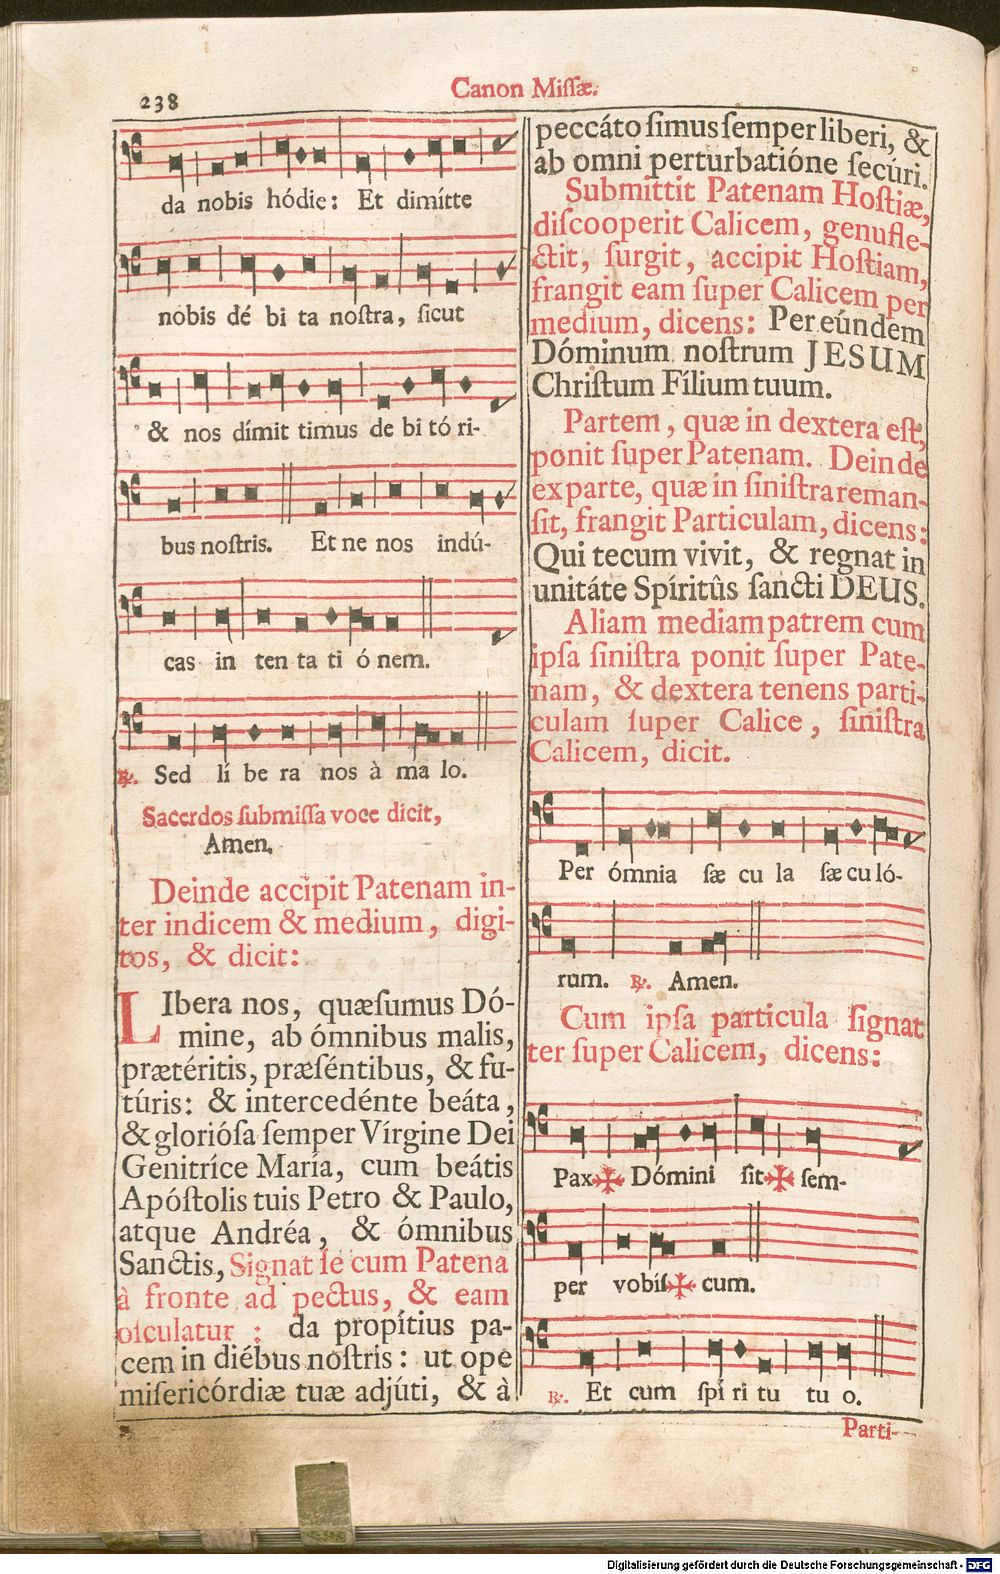 238
Canon Miſſæ.
da nobis hódie: Et dimítte
nobis dé bi ta noſtra, ſicut
& nos dímit timus de bi tó ri-
bus noſtris. Et ne nos indú-
cas in ten ta ti ó nem.
℟. Sed lí be ra nos à ma lo.
Sacerdos ſubmiſſa voce dicit,
Amen.
Deinde accipit Patenam in-
ter indicem & medium, digi-
tos, & dicit:
LIbera nos, quæſumus Dó-
mine, ab ómnibus malis,
prætéritis, præſéntibus, & fu-
túris: & intercedénte beáta,
& glorióſa ſemper Vírgine Dei
Genitríce María, cum beátis
Apóſtolis tuis Petro & Paulo,
atque Andréa, & ómnibus
Sanctis, Signat ſe cum Patena
à fronte ad pectus, & eam
oſculatur : da propítius pa-
cem in diébus noſtris: ut ope
miſericórdiæ tuæ adjúti, & à
peccáto ſimus ſemper liberi, &
ab omni perturbatióne ſecúri.
Submittit Patenam Hoſtiæ,
diſcooperit Calicem, genufle-
ctit, ſurgit, accipit Hoſtiam,
frangit eam ſuper Calicem per
medium, dicens: Per eúndem
Dóminum noſtrum JESUM
Chriſtum Fílium tuum.
Partem, quæ in dextera eſt,
ponit ſuper Patenam. Deinde
ex parte, quæ in ſiniſtra reman-
ſit, frangit Particulam, dicens:
Qui tecum vivit, & regnat in
unitáte Spíritûs ſancti DEUS.
Aliam mediam patrem cum
ipſa ſiniſtra ponit ſuper Pate-
nam, & dextera tenens parti-
culam ſuper Calice, ſiniſtra
Calicem, dicit.
Per ómnia ſæ cu la ſæ cu ló-
rum. ℟. Amen.
Cum ipſa particula ſignat
ter ſuper Calicem, dicens:
Pax ✠ Dómini ſit ✠ ſem-
per vobiſ ✠ cum.
℟. Et cum ſpí ri tu tu o.
Parti-
Digitalisierung gefördert durch die Deutsche Forschungsgemeinschaft - DFG